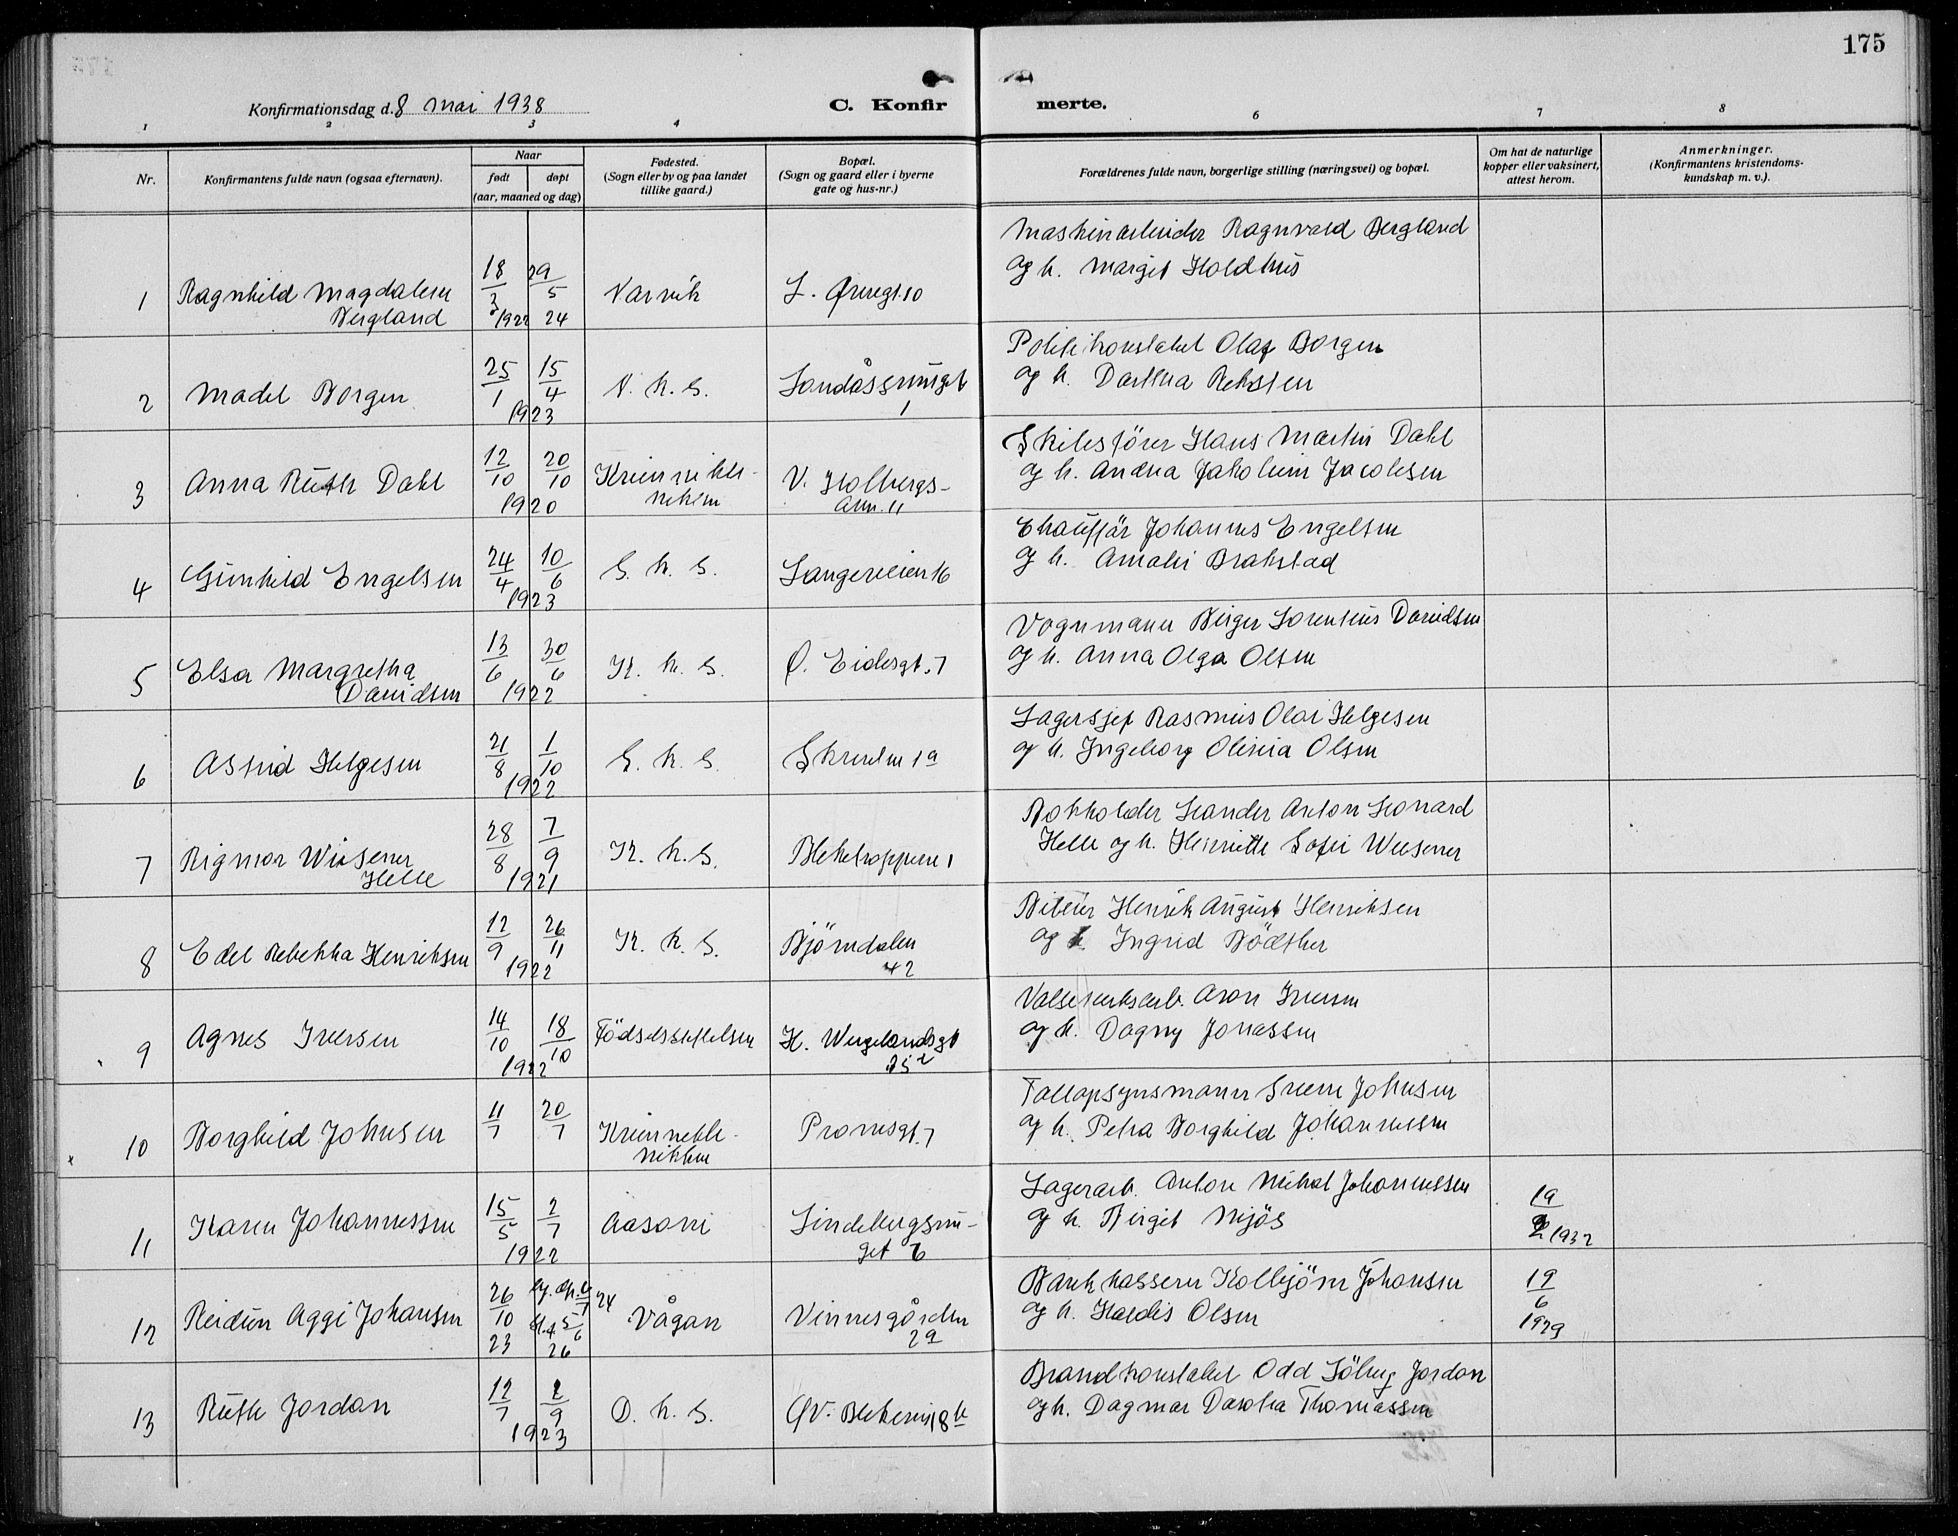 175
Konfirmationsdag d. 8 mai 1938
C. Konfir
merte.
1 2 3 4 6 7 8
Nr.
Konfirmantens fulde navn (ogsaa efternavn).
Naar
født
døpt
(aar, maaned og dag)
Fødested.
(Sogn eller by og paa landet
tillike gaard.)
Bopæl.
(Sogn og gaard eller i byerne
gate og hus-nr.)
Forældrenes fulde navn, borgerlige stilling (næringsvei) og bopæl.
Om hat de naturlige
kopper eller vaksinert,
attest herom.
Anmerkninger.
(Konfirmantens kristendoms-
kundskap m. v.).
1 Ragnhild Magdalene
Bergland
18/3 1922
29/5 24
Narvik
L. Øvregt. 10
Maskinarbeider Ragnvald Bergland
og h. Margit Holdhus
2 Madel Borgen
25/1 15/4
1923
N. k. S.
Landåssvinget
1
Politikonstabel Olaf Borgen
og h. Dorthea Reksten
3 Anna Ruth Dahl
12/10 20/10
1920
Kvinneklinikken
V. Holbergs-
alm. 11
Skibsfører Hans Martin Dahl
og h. Andrea Jakobine Jacobsen
4 Gunhild Engelsen
24/4 10/6
1923
S. k. S.
Langeveien 16
Chauffør Johannes Engelsen
og h. Amalie Brakstad
5 Elsa Margretha
Davidsen
13/6 30/6
1922
K. k. S.
Ø. Eidesgt. 7
Vognmann Birger Lorentius Davidsen
og h. Anna Olga Olsen
6 Astrid Helgesen
21/8 1/10
1922
S. k. S.
Skivebn 1a
Lagersjef Rasmus Olai Helgesen
og h. Ingeborg Olivia Olsen
7 Rigmor Wiesener
Helle
28/8 7/9
1921
K. k. S.
Bleketroppene 1
Bokholder Leander Anton Leonard
Helle og h. Henriette Sofie Wiesener
8 Edel Rebekka Henriksen
12/9 26/11
1922
K. k. S.
Bjørndalen
42
Henrik August Henriksen
og h. Ingrid Bödtker
9 Agnes Iversen
14/10 18/10
1922
Födselsstiftelsen
H. Wergelandsgt
Valseverksarb. Aron Iversen
og h. Dagny Jonassen
10 Borghild Johnsen
11/7 20/7
Kvinnekli-
nikken
Promsgt. 7
Sverre Johnsen
og h. Petra Borghild Johannessen
11 Karen Johannessen
15/5 2/7
1922
Aasane
Lindebergsvin-
get 6
Lagerarb. Anton Mikal Johannessen
og h. Birgit Mjös
19
1932
12 Reidun Aggi Johansen
26/10 23
24
5/6 26
Vågan
Vinnesgården
2a
Bankkasserer Kolbjörn Johansen
og h. Haldis Olsen
19/6
1929
13 Ruth Jordan
12/7 2/9
1923
D. k. S.
ØV. Blekevei 18 b
Brandkonstabel Odd Sölvig Jordan
og h. Dagmar Dorthea Thomassen